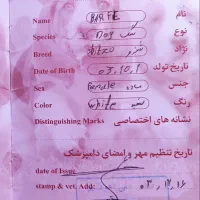 Name BARFE نام
Species Dog سگ نوع
Breed shitzo شیتزو نژاد
Date of Birth ۰۳،۱۰،۱ تاریخ تولد
Sex Female ماده جنس
Color white سفید رنگ
Distinguishing Marks نشانه های اختصاصی
تاریخ تنظیم مهر و امضای دامپزشک
date of Issue
stamp & vet. Add: ۰۳،۱۲،۱۶